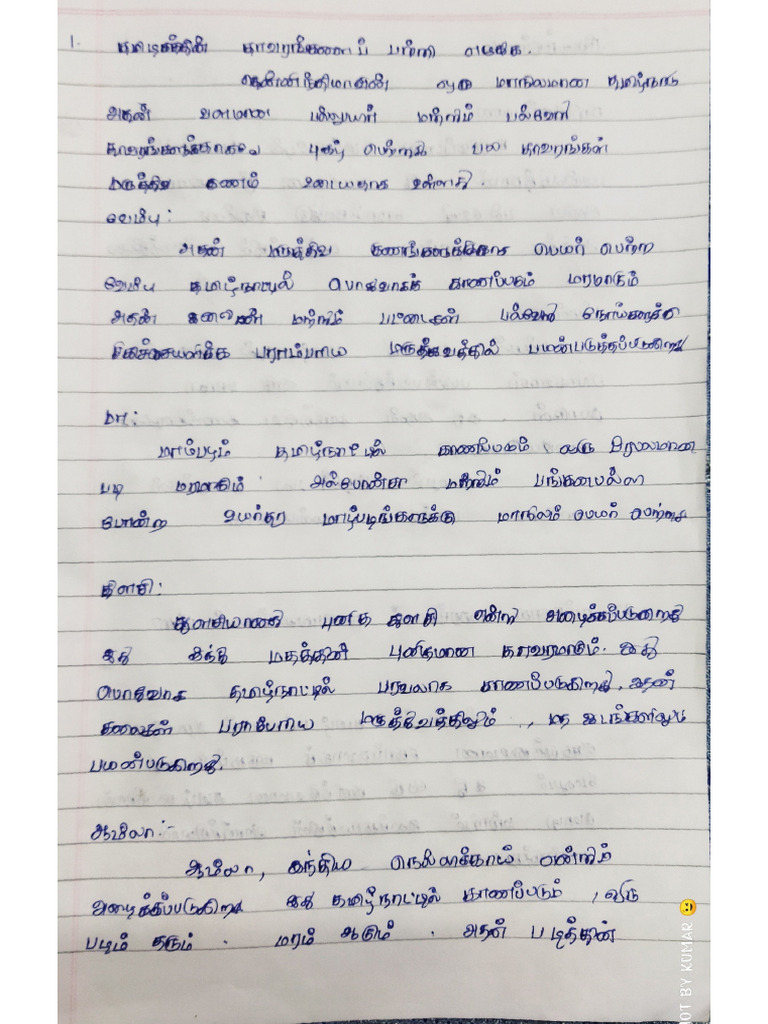 1. தமிழகத்தின் தாவரங்களைப் பற்றி எழுதுக.
தென்னிந்தியாவின் ஒரு மாநிலமான தமிழ்நாடு
அதன் வளமான பல்லுயிர் மற்றும் பல்வேறு
தாவரங்களுக்காகவும் புகழ் பெற்றது பல தாவரங்கள்
மருத்துவ குணம் உடையதாக உள்ளது.
வேம்பு:
அதன் மருத்துவ குணங்களுக்காக பெயர் பெற்ற
வேம்பு தமிழ்நாட்டில் பொதுவாகக் காணப்படும் மரமாகும்
அதன் இலைகள் மற்றும் பட்டைகள் பல்வேறு நோய்களுக்கு
சிகிச்சையளிக்க பாரம்பரிய மருத்துவத்தில் பயன்படுத்தப்படுகிறது
மா:
மாம்பழம் தமிழ்நாட்டில் காணப்படும் ஒரு பிரபலமான
பழ மரமாகும் அல்போன்சா மற்றும் பங்கனபல்லா
போன்ற உயர்தர மாம்பழங்களுக்கு மாநிலம் பெயர் பெற்றது
துளசி:
துளசியானது புனித துளசி என்று அழைக்கப்படுகிறது
இது இந்து மதத்தின் புனிதமான தாவரமாகும். இது
பொதுவாக தமிழ்நாட்டில் பரவலாக காணப்படுகிறது. இதன்
இலைகள் பாரம்பரிய மருத்துவத்திலும், மத இடங்களிலும்
பயன்படுகிறது.
ஆம்லா:-
ஆம்லா, இந்திய நெல்லிக்காய் என்றும்
அழைக்கப்படுகிறது இது தமிழ்நாட்டில் காணப்படும், ஒரு
பழம் தரும். மரம் ஆகும். அதன் பழத்தின்
OT BY KUMAR